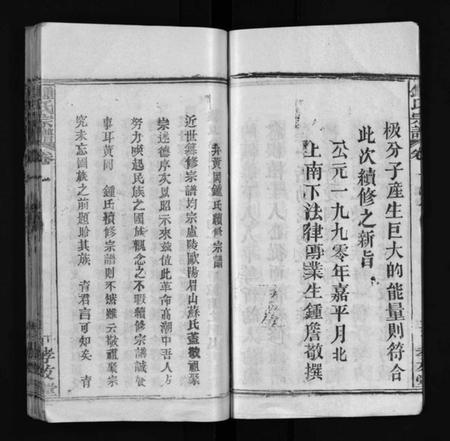 极分子産生巨大的能量則符合
此次續修之新旨
公元一九九零年嘉平月北
上南下法律專業生鍾詹敬撰
弁黄岡鍾氏續修宗譜
近世纂修宗譜均宗盧陵歐陽眉山蘇氏蓋敬祖聚
宗述德序次以昭示來茲值此革命高潮中吾人方
努力喚起民族之國族觀念之不暇續修宗譜誠
事耳黄岡 鍾氏續修宗譜則不嬚雖云敬祖聚宗
究未忘國族之前題胎其族 青君言可知矣 青
鍾氏宗譜
卷
孝友堂